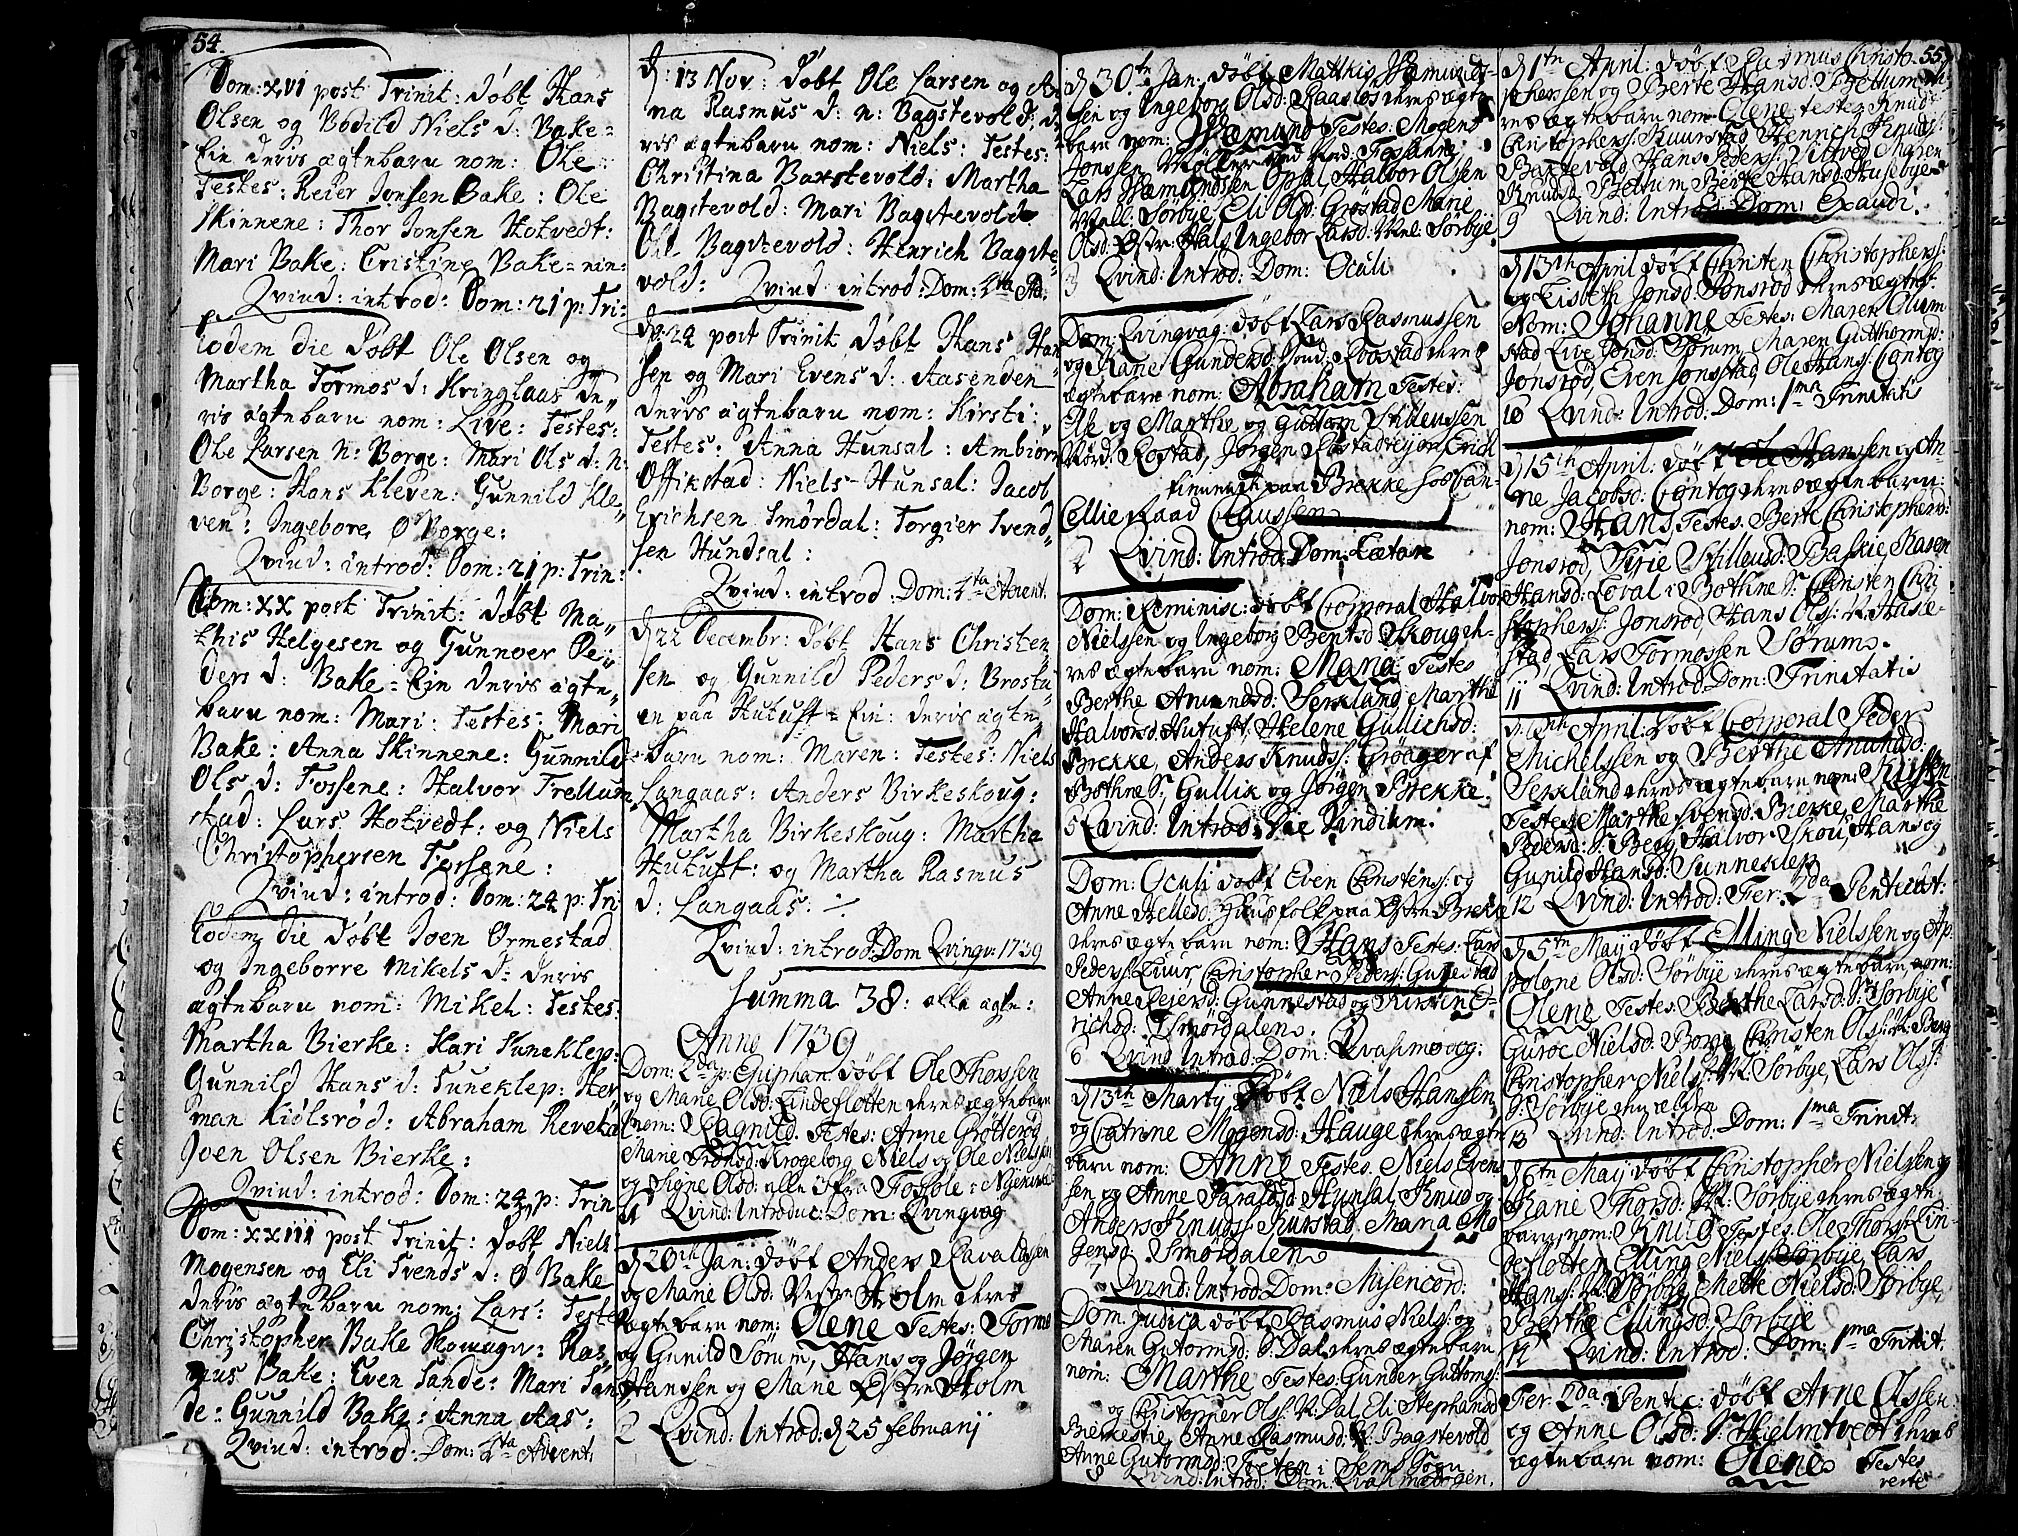 54.
Dom: XVI post Trinit: døbt Hans
Olsen og Bodild Niels d: Bake-
Ein deris ægtebarn nom: Ole:
Testes: Reier Jonsen Bake: Ole
Skinnene: Thor Jonsen Hotvedt:
Mari Bake: Cristine Bake=nin:
Qvind: introd: Dom: 21 p: Tri-
Eodem die døbt Ole Olsen og
Martha Tormos d: Kringlaas de,,
ris ægtebarn nom: Live: Testes:
Ole Larsen N: Borge: Mari Ols d: N:
Borge: Hans Kleven: Gunnild Kle,,
ven: Ingebore, Ø Borge:
Qvind: introd: Dom: 21 p: Trin:
Dom: XX post Trinit: døbt Ma,,
this Helgesen og Gunnoer Pe,,
ders d: Bake=Ein deris ægte,,
barn nom: Mari: Testes: Mari
Bake: Anna Skinnene: Gunnild
Ols d: Fossene: Halvor Trellum
stad: Lars Hotvedt: og Niels
Christophersen Forsene:
Qvind: introd: Dom: 24 p: Tri
Eodem die døbt Joen Ormestad
og Ingeborre Mikels d: deris
ægtebarn nom: Mikel: Testes:
Martha Bierke: Kari Suneklep:
Gunnild Hans d: Suneklep: Her
man Kiølsrød: Abraham Revetal
Joen Olsen Bierke:
Qvind: introd: Dom: 24 p: Trin
Dom: XXIII post Trinit: døbt Niels
Mogensen og Eli Svends d: Ø Bake
deris ægtebarn nom: Lars: Teste
Christopher Bake Skougen: Ras,,
mus Bake: Even Sande: Mari San,,
de: Gunnild Bake: Anna Aas:
Qvind: introd: Dom: 4ta Advent:
d: 13 Nov: døbt Ole Larsen og An
na Rasmus d: N: Bagstevold: de
ris ægtebarn nom: Niels: Testes:
Christina Baxstevold: Martha
Bagstevold: Mari Bagstevold:
Ole Bagstevold: Henrich Bagste-
vold: Qvind introd: Dom: 4ta Ad:
Do: 24 post Trinit døbt Hans Han
sen og Mari Evens d: Aasenden
deris ægtebarn nom: Kirsti:
Testes: Anna Hunsal: Ambiørn
Offikstad: Niels Hunsal: Jacob
Erichsen Smørdal: Torgier Svend,,
sen Hundsal:
Qvind: introd: Dom: 4ta Advent:
d 22 Decembr: døbt Hans Christen
sen og Gunnild Peders d: Brostu
en paa Hutuft=Ein: deris ægte,,
barn nom: Maren: Testes: Niels
Langaas: Anders Birkeskoug:
Martha Birkeskoug: Martha
Hutuft: og Martha Rasmus
d: Langaas:
Qvind: introd: Dom Qvingv: 1739
Summa 38: alle ægte:
Anno 1739
Dom: 2da p: Epiphan: døbt Ole Thorssen
og Marie Olsd: Lindefløtten deres ægtebarn
nom: Ragnild. Testes: Anne Grøtterød
Marie Tronsd: Krogeborg, Niels og Ole Nielssen
og Signe Olsd: alle 3 fra Fossole
1 Qvind: Introduc: Dom: Qvingvag
d 20th Jan: døbt Anders Ravaldssen
og Marie Olsd: Vestre Holm deres
ægtebarn nom: Olene Testes: Tormo
og Gunild Sørum, Hans og Jørgen
Hanssen og Marie Østre Holm
2 Qvind: Introd: d 25 februarij
d 30th Jan: døbt Matthis Asmunds-
sen og Ingeborg Olsd: Raasløs deres ægte-
barn nom: Asmund Testes: Mogens
Jonssen
Lars Asmundssen Opsal, Halvor Olsen
Mell: Sørbye, Eli Olsd: Grøstad, Marie
Olsd: Østr: Hals, Ingebor Larsd: Mel: Sørbye.
3 Qvind: Introd: Dom: Oculi
Dom: Qvingvag: døbt Lars Rasmussen
og Rane Gundersd: Roestad deres
ægtebarn nom: Abraham Testes:
Ole og Marthe og Guttorm Stillenssen
Nord: Rostad, Jørgen
paa Brekke hos Can-
cellieraad Claussen
4 Qvind: Introd: Dom: Lætare
Dom: Reminisc: døbt Corporal Halvor
Nielssen og Ingeborg Bentsd Skougen-
res ægtebarn nom: Maria Testes
Berthe Amundsd: Serkland, Marthe
Halvorsd: Hutuft, Helene Gullichsd:
Brekke, Anders Knudss: Groager af
Bothne S:, Gullik og Jørgen Brekke.
5 Qvind: Introd: Die Viridium.
Dom: Oculi døbt Even Christens: og
Anne Hellesd: huusfolk paa Østre Brekke
deres ægtebarn nom: Hans Testes: Lars
Peders: Luur, Christopher Peders: Gunestad
Anne Reiersd: Gunnestad og Kirsten E-
richsd: Smørdalen.
6 Qvind Introd: Dom: Qvasimodog:
d 13th Martij døbt Niels Hanssen
og Catrine Mogensd: Hauge deres ægte
barn nom: Anne Testes. Niels Even
sen og Anne Haraldsd: Hunsal, Knud og
Anders Knuds: Kurstad, Maria Mo
gensd: Smørdalen
7 Qvind: Introd: Dom: Misericord:
Dom: Judica døbt Rasmus Niels: og
Maren Gutormsd: S: Dal deres ægtebarn
nom: Marthe Testes: Gunder Guttorms:
og Christopher Ols: N: Dal, Eli Stephansd
Bierkestie, Anne Rasmusd: N: Bagstevold
Anne Gutormsd: Tveten i Sems Sogn
8 Qvind: Introd: Dom: Qvasimodogen:
55.
d 1th April: døbt Rasmus Christo-
phersen og Berte Hansd: Bettum de-
res ægtebarn nom: Olene testes Knud
Christophers: Kuurstad, Henrich Knuds:
Baxtevold, Hans Peders: Vittved, Maren
Knudsd: Bettum, Berte Hansd: Husebye.
9 Qvind: Introd: Dom: Exaudi.
d 13th April døbt Christen Christophers:
og Lisbeth Jonsd: Jonsrød deres ægteb:
Nom: Johanne Testes: Maren Olum
stad, Live Jonsd: Sørum, Maren Gutthorms:
Jonsrød, Even Jonsstad, Ole Hans: Contog
10 Qvind: Introd: Dom: 1ma Trinitatis
d 15th April: døbt Ole Hanssen og An-
ne Jacobsd: Contog deres ægtebarn:
nom: Hans, Testes: Berte Christophersd:
Jonsrød, Sirie Stillufsd: Baskie, Karen
Hansd: Løval i Bothne S:, Christen Chri
stophers: Jonsrød, Hans Ols: N: Hasle-
stad, Lars Tormossen Sørum.
11 Qvind: Introd: Dom: Trinitatis
April: døbt Corporal Peder
Michelssen og Berthe Amundsd:
Serkland deres ægtebarn nom: Kirsten
Testes: Marthe Svensd: Bierke, Marthe
Pedersd: S: Berg, Halvor Skou, Hans og
Gunild Hansd: Sunneklep
12 Qvind: Introd: Fer: 2da Pentecst:
d 5th Maij døbt Elling Nielssen og Ap-
polone Olsd: Sørbye deres ægtebarn nom:
Olene Testes: Berthe Larsd: S: Sørbye
Guroe Nielsd: Borge, Christen Ols: N: Berg
Christopher Niels: N: Sørbye, Lars Ols:
S: Sørbye
13 Qvind: Introd: Dom: 1ma Trinit:
d 6th Maij døbt Christopher Nielssen og
Rane Thorsd: N: Sørbye deres ægte
barn nom: Knud Testes: Ole Thors: Lin-
defløtten, Elling Niels: Sørbye, Lars
Hans: N: Sørbye, Mette Nielsd: Sørbye,
Berthe Ellingsd: Sørbye
14 Qvind: Introd: Dom: 1ma Trinit:
Fer: 2da Pentec: døbt Arne Olssen
og Anne Olsd: S: Hielmtvedt deres
ægtebarn nom: Olene Testes
verte